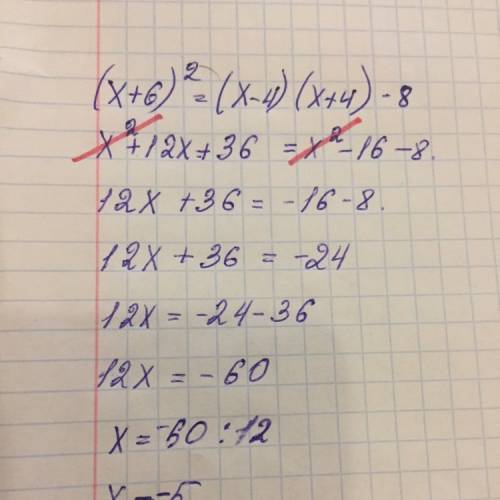 (x+6)² = (x-4)(x+4) - 8
x²+12x+36 = x²-16-8.
12x +36 = -16-8.
12x + 36 = -24
12x = -24-36
12x = -60
x = -60 : 12
x = -5